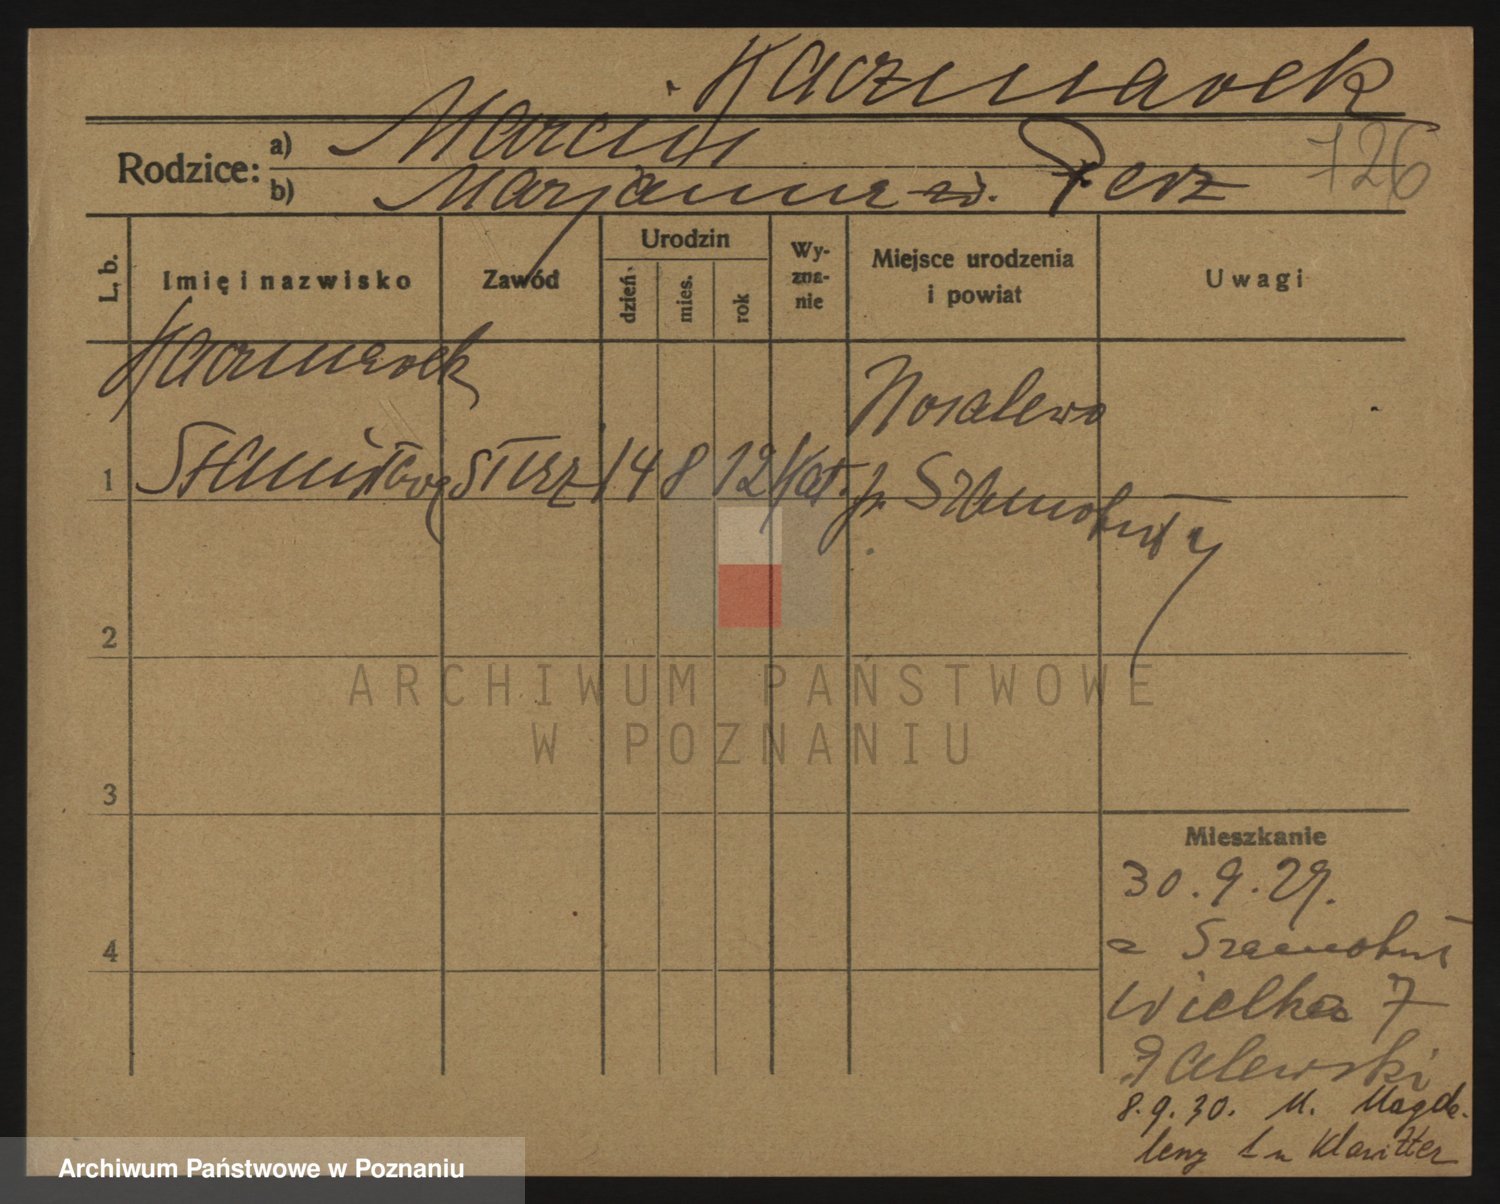 Kaczmarek
Rodzice:
a) Marcin
b) Marjanna zd. Perz
126
L. b.
Imię i nazwisko
Zawód
Urodzin
dzień
mies.
rok
Wy-
zna-
nie
Miejsce urodzenia
i powiat
Uwagi
Kaczmarek
Nosalewo
1 Stanisława służ 14 8 12 kat. p. Szamotuły
2
3
4
Mieszkanie
30.9.29.
z Szamotuł
Wielka 7
8.9.30. M. Magda-
leny 1 u Klawitter
ARCHIWUM PAŃSTWOWE
W POZNANIU
Archiwum Państwowe w Poznaniu